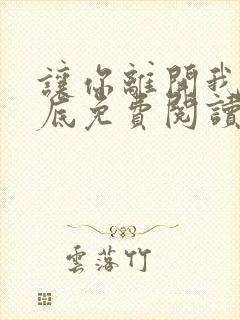 讓你離開我
底免費閱讀
雲落竹